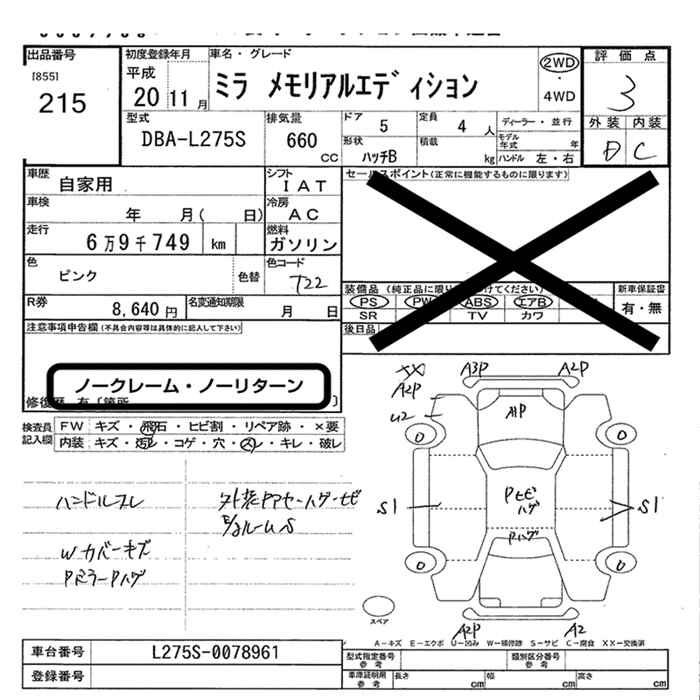 出品番号 初度登録年月 車名・グレード 評価点
[855] 平成 2WD
215 20 11月 ミラ メモリアルエディション ・ 3
4WD
型式 排気量 ドア 5 定員 4人 ディーラー・並行 外装 内装
DBA-L275S 660 cc 形状 ハッチB 積載 kg モデル年式 年 D C
ハンドル 左・右
車歴 自家用 シフト IAT セールスポイント(正常に機能するものに限ります)
車検 年 月( 日) 冷房 AC
走行 6万9千749 km 燃料 ガソリン
色 ピンク 色替 色コード T22 装備品 新車保証書
PS PW ABS エアB 有・無
SR TV カワ
R券 8,640円 名変通知期限 月 日 後日品
注意事項申告欄(不具合内容等は具体的に記入して下さい)
ノークレーム・ノーリターン
検査員記入欄 FW キズ・飛石・ヒビ割・リペア跡・×要
内装 キズ・汚レ・コゲ・穴・スレ・キレ・破レ
XX A3P A2P
A2P
U2 A1P
S1 Pヒビ ハゲ S1
Pハゲ
A2P A2
ハンドルスレ
Wカバーキズ
PミラーPハゲ
スペア
A-キズ E-エクボ U-凹み W-補修跡 S-サビ C-腐食 XX-交換済
車台番号 L275S-0078961 型式指定番号 参考 類別区分番号 参考
登録番号 車庫証明用 参考 長さ cm 幅 cm 高さ cm